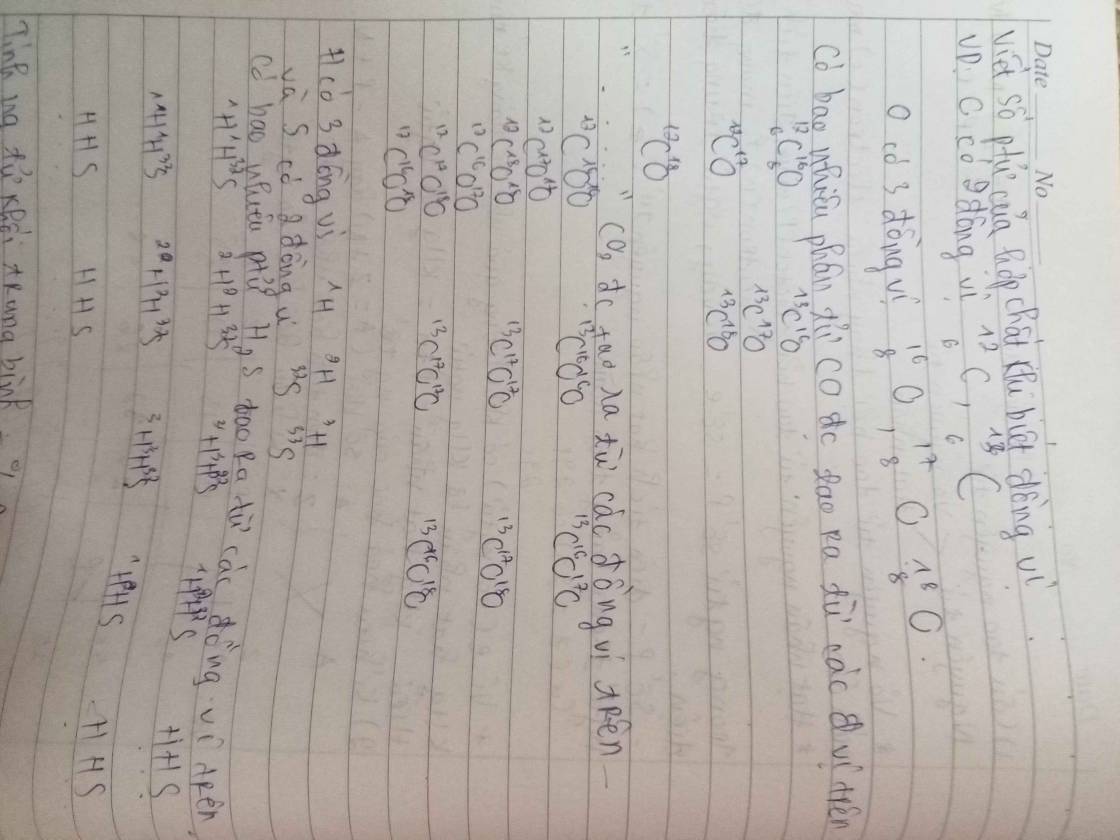 Date No
Viết số ptử của hợp chất khi biết đồng vị
VD: C có 2 đồng vị: ¹²₆C, ¹³₆C
O có 3 đồng vị ¹⁶₈O, ¹⁷₈O, ¹⁸₈O.
Có bao nhiêu phân tử CO đc tạo ra từ các đ vị trên
¹²₆C¹⁶₈O ¹³C¹⁶O
¹³C¹⁷O
¹²C¹⁷O ¹³C¹⁸O
¹²C¹⁸O
" . . . . . " CO₂ đc tạo ra từ các đồng vị trên
¹²C¹⁶O¹⁶O ¹³C¹⁶O¹⁶O ¹³C¹⁶O¹⁷O
¹²C¹⁷O¹⁷O
¹²C¹⁸O¹⁸O ¹³C¹⁷O¹⁷O ¹³C¹⁷O¹⁸O
¹²C¹⁶O¹⁷O
¹²C¹⁷O¹⁸O ¹³C¹⁷O¹⁷O ¹³C¹⁶O¹⁸O
¹²C¹⁶O¹⁸O
H có 3 đồng vị ¹H ²H ³H
và S có 2 đồng vị ³²S ³³S
Có bao nhiêu ptử H₂S tạo ra từ các đồng vị trên
¹H¹H³²S ²H²H³²S ³H³H³²S ¹H²H³²S
¹H¹H³³S ²H²H³³S ³H³H³³S ¹H²HS HHS
HHS HHS HHS
Tính ng tử khối trung bình - %